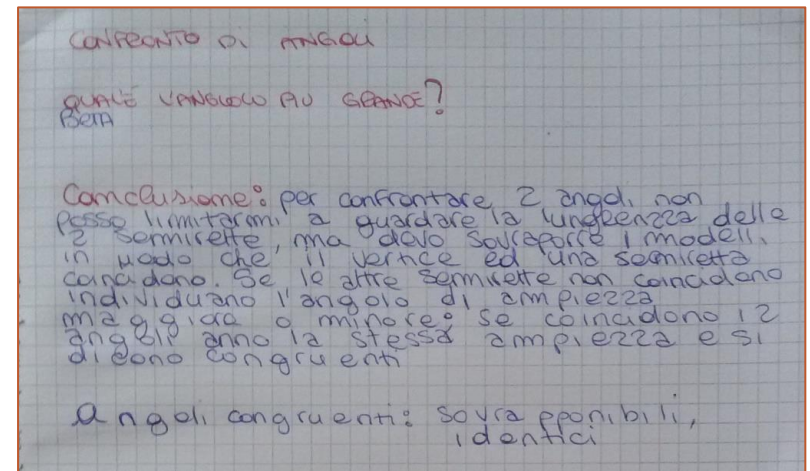 CONFRONTO DI ANGOLI
QUALE L'ANGLOLO PIU GRANDE?
BETA
Conclusione: per confrontare 2 angoli non
posso limitarmi a guardare la lungeenzza delle
2 sermirette, ma devo sovraporre i modelli
in modo che il vertice ed una semiretta
coincidono. Se le altre semirette non coincidono
individuano l'angolo di ampiezza
maggiora o minore: se coincidono i 2
angoli anno la stessa ampiezza e si
dicono congruenti
Angoli congruenti: sovrapponibili,
identici